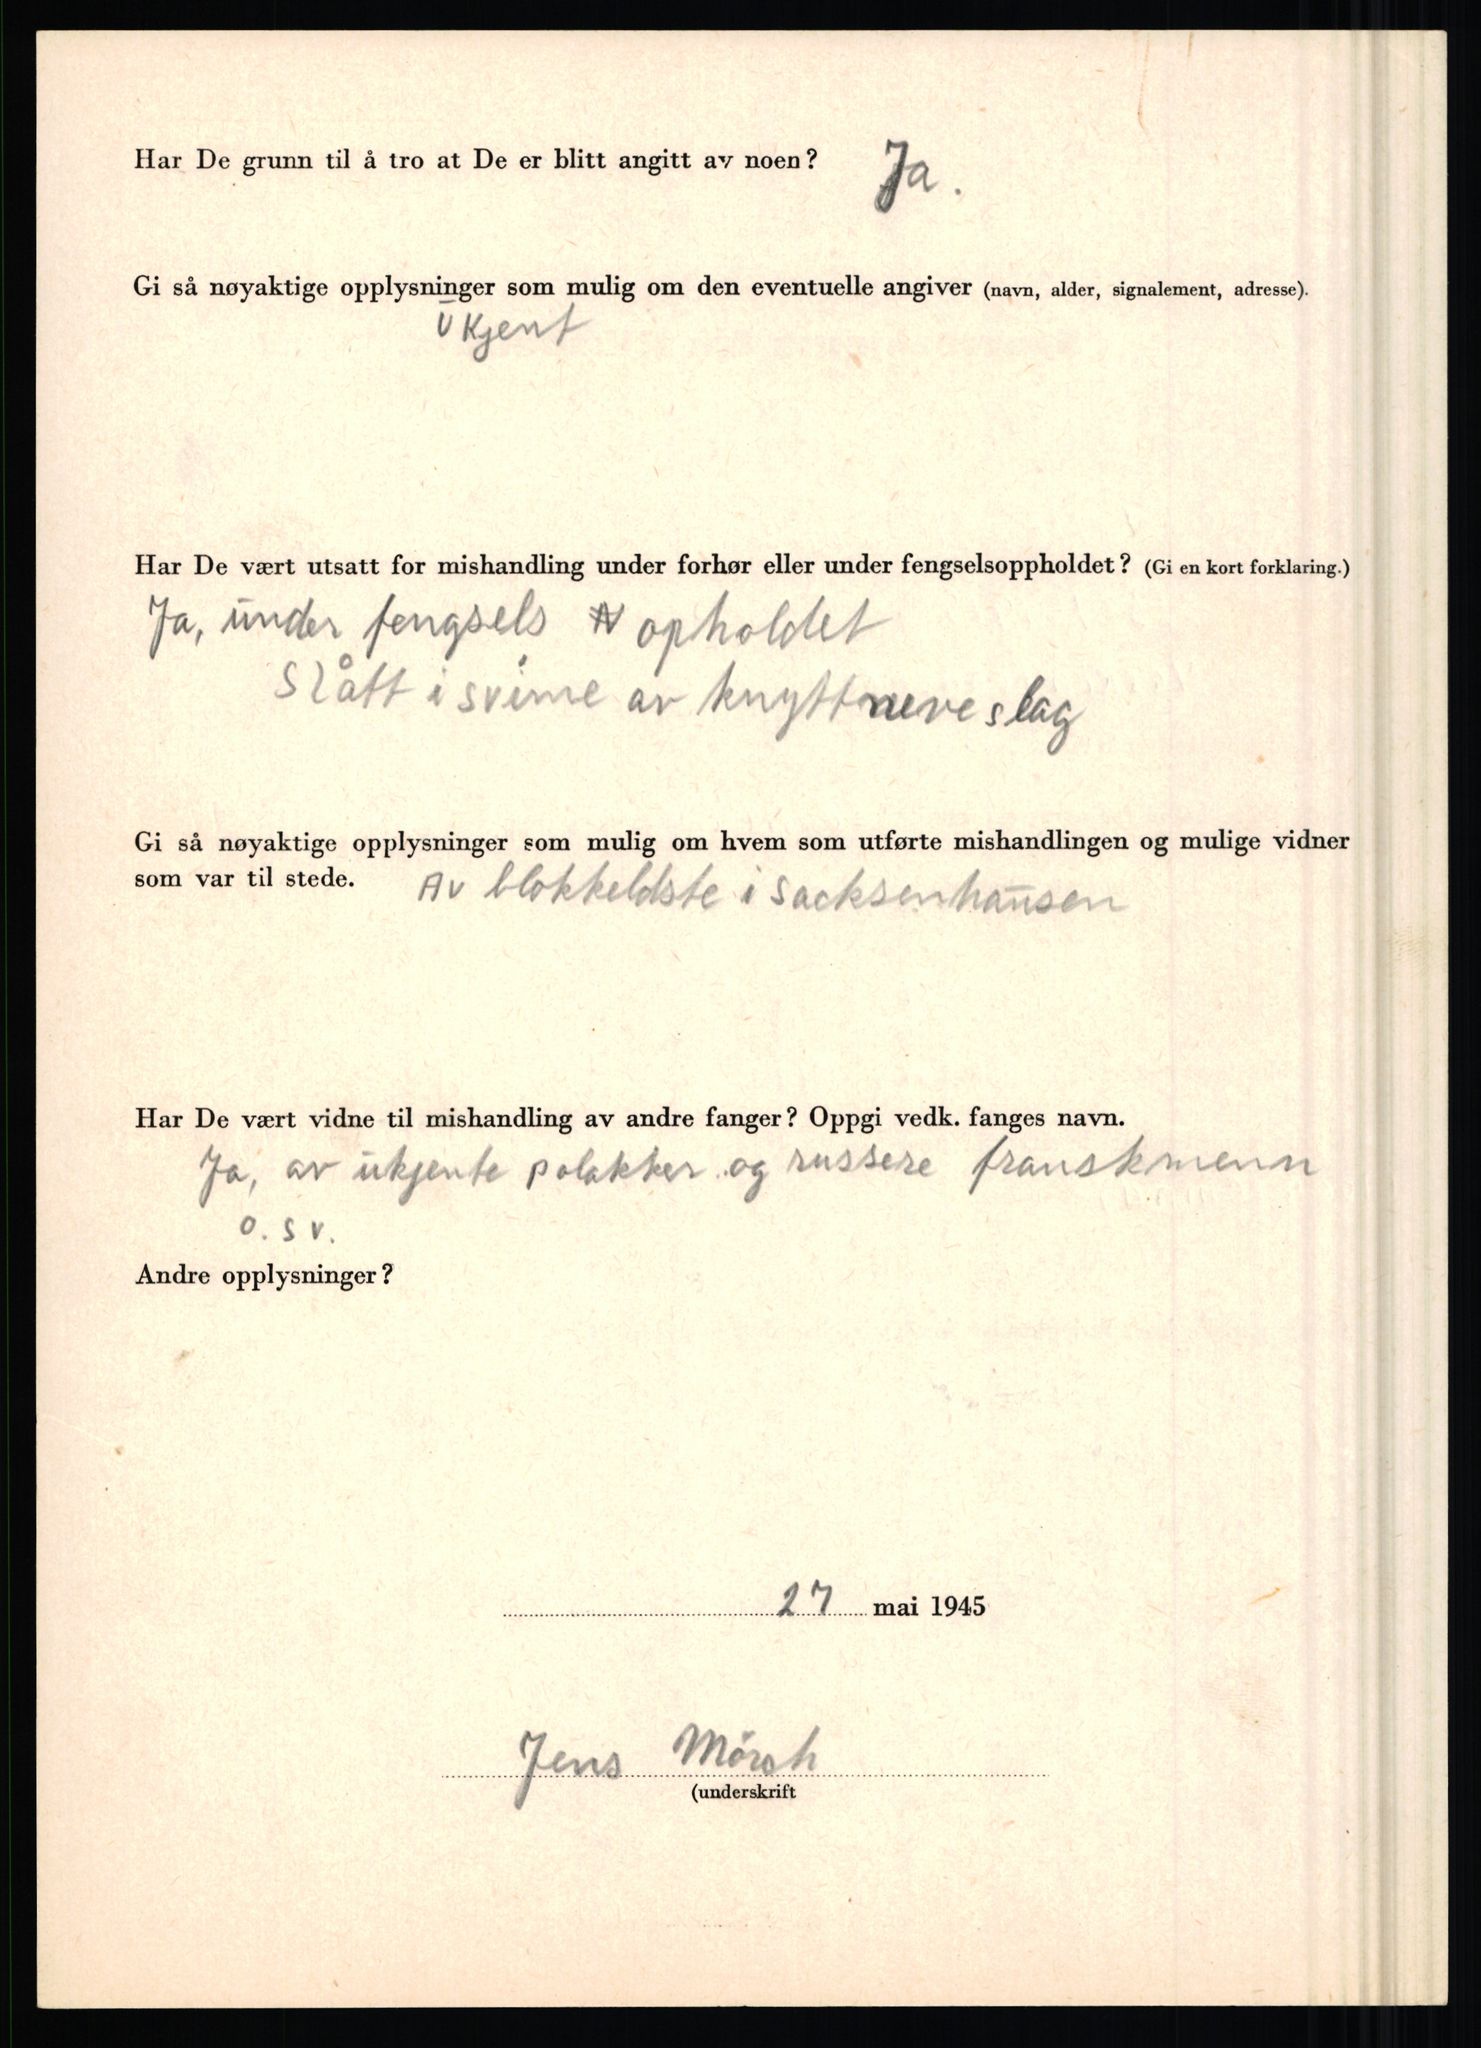 Har De grunn til å tro at De er blitt angitt av noen? Ja.
Gi så nøyaktige opplysninger som mulig om den eventuelle angiver (navn, alder, signalement, adresse).
Ukjent
Har De vært utsatt for mishandling under forhør eller under fengselsoppholdet? (Gi en kort forklaring.)
Ja, under fengsels opholdet
Slått i svime av knyttneveslag
Gi så nøyaktige opplysninger som mulig om hvem som utførte mishandlingen og mulige vidner
som var til stede. Av blokkeldste i Sacksenhausen
Har De vært vidne til mishandling av andre fanger? Oppgi vedk. fanges navn.
Ja, av ukjente polakker og russere franskmenn
o. s v.
Andre opplysninger?
27 mai 1945
Jens Mörch
(underskrift